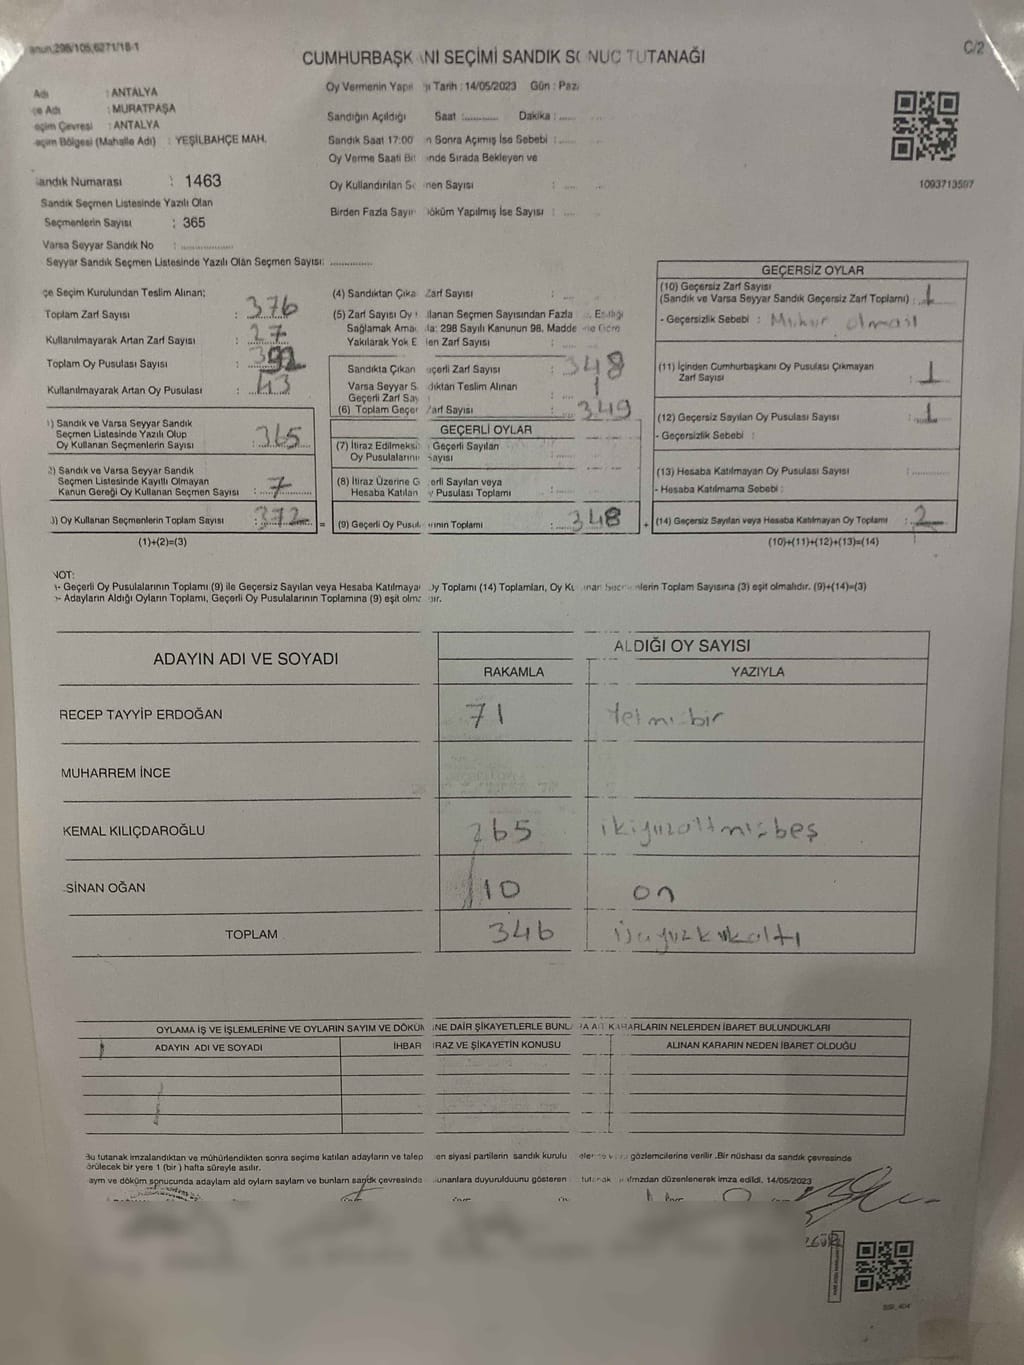 anun,298/105,6271/18-1
C/2
CUMHURBAŞK ANI SEÇİMİ SANDIK SONUÇ TUTANAĞI
Adı : ANTALYA
çe Adı : MURATPAŞA
eçim Çevresi : ANTALYA
eçim Bölgesi (Mahalle Adı) : YEŞİLBAHÇE MAH.
andık Numarası : 1463
Sandık Seçmen Listesinde Yazılı Olan
Seçmenlerin Sayısı : 365
Varsa Seyyar Sandık No : ..............
Seyyar Sandık Seçmen Listesinde Yazılı Olan Seçmen Sayısı: ............
Oy Vermenin Yapı Tarih : 14/05/2023 Gün : Paz
Sandığın Açıldığı Saat :.......... Dakika :..........
Sandık Saat 17:00 n Sonra Açımış İse Sebebi :
Oy Verme Saati Bit inde Sırada Bekleyen ve
Oy Kullandırılan Seçmen Sayısı :
Birden Fazla Sayım Döküm Yapılmış İse Sayısı :
1093713507
çe Seçim Kurulundan Teslim Alınan;
Toplam Zarf Sayısı : 376
Kullanılmayarak Artan Zarf Sayısı : 27
Toplam Oy Pusulası Sayısı :
Kullanılmayarak Artan Oy Pusulası : 43
1) Sandık ve Varsa Seyyar Sandık
Seçmen Listesinde Yazılı Olup
Oy Kullanan Seçmenlerin Sayısı : 365
2) Sandık ve Varsa Seyyar Sandık
Seçmen Listesinde Kayıtlı Olmayan
Kanun Gereği Oy Kullanan Seçmen Sayısı : 7
3) Oy Kullanan Seçmenlerin Toplam Sayısı : 372 =
(1)+(2)=(3)
(4) Sandıktan Çıka Zarf Sayısı :
(5) Zarf Sayısı Oy ılanan Seçmen Sayısından Fazla Eşitliği
Sağlamak Ama la: 298 Sayılı Kanunun 98. Madde ne Göre
Yakılarak Yok E len Zarf Sayısı :
Sandıkta Çıkan eçerli Zarf Sayısı : 348
Varsa Seyyar S dıktan Teslim Alınan
Geçerli Zarf Say : 1
(6) Toplam Geçer Zarf Sayısı : 349
GEÇERLİ OYLAR
(7) İtiraz Edilmeksi Geçerli Sayılan
Oy Pusulaların Sayısı :
(8) İtiraz Üzerine G erli Sayılan veya
Hesaba Katılan y Pusulası Toplamı :
(9) Geçerli Oy Pusul rının Toplamı : 348 +
GEÇERSİZ OYLAR
(10) Geçersiz Zarf Sayısı
(Sandık ve Varsa Seyyar Sandık Geçersiz Zarf Toplamı) : 1
- Geçersizlik Sebebi : Mühür olması
(11) İçinden Cumhurbaşkanı Oy Pusulası Çıkmayan
Zarf Sayısı : 1
(12) Geçersiz Sayılan Oy Pusulası Sayısı : 1
- Geçersizlik Sebebi :
(13) Hesaba Katılmayan Oy Pusulası Sayısı :
- Hesaba Katılmama Sebebi :
(14) Geçersiz Sayılan veya Hesaba Katılmayan Oy Toplamı : 2
(10)+(11)+(12)+(13)=(14)
NOT:
- Geçerli Oy Pusulalarının Toplamı (9) ile Geçersiz Sayılan veya Hesaba Katılmaya Oy Toplamı (14) Toplamları, Oy Ku lanan Seçmenlerin Toplam Sayısına (3) eşit olmalıdır. (9)+(14)=(3)
- Adayların Aldığı Oyların Toplamı, Geçerli Oy Pusulalarının Toplamına (9) eşit olma ır.
ADAYIN ADI VE SOYADI
ALDIĞI OY SAYISI
RAKAMLA YAZIYLA
RECEP TAYYİP ERDOĞAN 71 Yetmişbir
MUHARREM İNCE
KEMAL KILIÇDAROĞLU 265 ikiyüzaltmışbeş
SİNAN OĞAN 10 on
TOPLAM 346 üçyüzkırkaltı
OYLAMA İŞ VE İŞLEMLERİNE VE OYLARIN SAYIM VE DÖKÜM NE DAİR ŞİKAYETLERLE BUNL RA AİT KARARLARIN NELERDEN İBARET BULUNDUKLARI
ADAYIN ADI VE SOYADI İHBAR İRAZ VE ŞİKAYETİN KONUSU ALINAN KARARIN NEDEN İBARET OLDUĞU
Bu tutanak imzalandıktan ve mühürlendikten sonra seçime katılan adayların ve talep en siyasi partilerin sandık kurulu gözlemcilerine verilir .Bir nüshası da sandık çevresinde
örülecek bir yere 1 (bir ) hafta süreyle asılır.
ayım ve döküm sonucunda adayların ald oyların sayılam ve bunların sandık çevresinde unanlara duyurulduunu gösteren tutanak düzenlenerek imza edildi. 14/05/2023